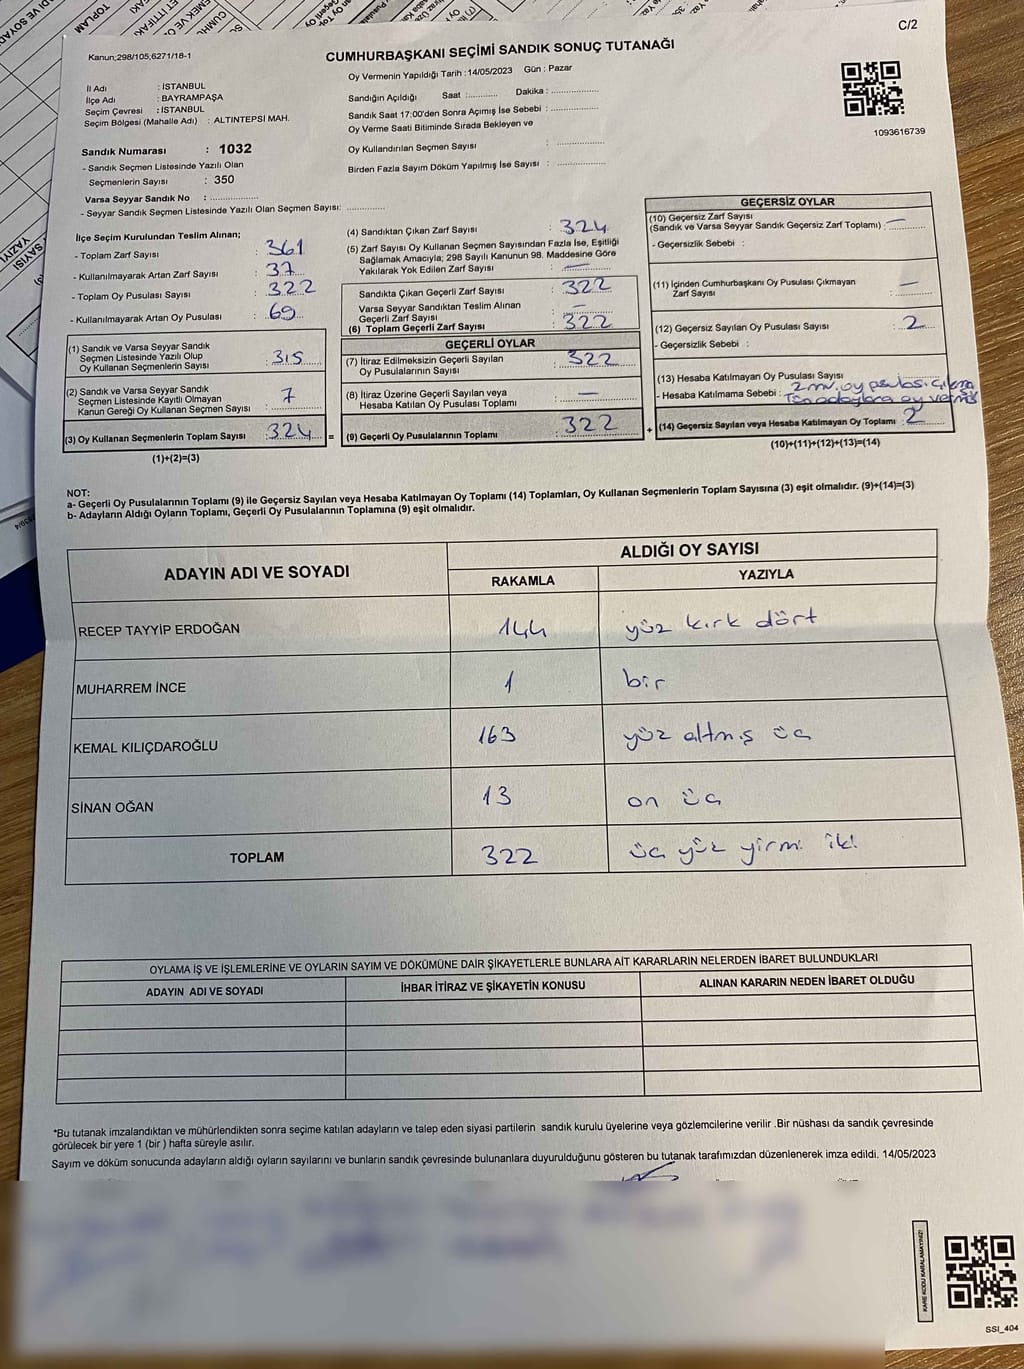 C/2
Kanun;298/105;6271/18-1
CUMHURBAŞKANI SEÇİMİ SANDIK SONUÇ TUTANAĞI
Oy Vermenin Yapıldığı Tarih :14/05/2023 Gün : Pazar
İl Adı : İSTANBUL
İlçe Adı : BAYRAMPAŞA
Seçim Çevresi : İSTANBUL
Seçim Bölgesi (Mahalle Adı) : ALTINTEPSİ MAH.
Sandığın Açıldığı Saat :........... Dakika :......................
Sandık Saat 17:00'den Sonra Açımış İse Sebebi :..................
Oy Verme Saati Bitiminde Sırada Bekleyen ve
Oy Kullandırılan Seçmen Sayısı :..................
Birden Fazla Sayım Döküm Yapılmış İse Sayısı :..................
1093616739
Sandık Numarası : 1032
- Sandık Seçmen Listesinde Yazılı Olan
Seçmenlerin Sayısı : 350
Varsa Seyyar Sandık No :..................
- Seyyar Sandık Seçmen Listesinde Yazılı Olan Seçmen Sayısı:..............
İlçe Seçim Kurulundan Teslim Alınan;
- Toplam Zarf Sayısı : 361
- Kullanılmayarak Artan Zarf Sayısı : 37
- Toplam Oy Pusulası Sayısı : 322
- Kullanılmayarak Artan Oy Pusulası : 69
(1) Sandık ve Varsa Seyyar Sandık
Seçmen Listesinde Yazılı Olup
Oy Kullanan Seçmenlerin Sayısı : 315
(2) Sandık ve Varsa Seyyar Sandık
Seçmen Listesinde Kayıtlı Olmayan
Kanun Gereği Oy Kullanan Seçmen Sayısı : 7
(3) Oy Kullanan Seçmenlerin Toplam Sayısı : 324 =
(1)+(2)=(3)
(4) Sandıktan Çıkan Zarf Sayısı : 324
(5) Zarf Sayısı Oy Kullanan Seçmen Sayısından Fazla İse, Eşitliği
Sağlamak Amacıyla; 298 Sayılı Kanunun 98. Maddesine Göre
Yakılarak Yok Edilen Zarf Sayısı : —
Sandıkta Çıkan Geçerli Zarf Sayısı : 322
Varsa Seyyar Sandıktan Teslim Alınan
Geçerli Zarf Sayısı : —
(6) Toplam Geçerli Zarf Sayısı : 322
GEÇERLİ OYLAR
(7) İtiraz Edilmeksizin Geçerli Sayılan
Oy Pusulalarının Sayısı : 322
(8) İtiraz Üzerine Geçerli Sayılan veya
Hesaba Katılan Oy Pusulası Toplamı : —
(9) Geçerli Oy Pusulalarının Toplamı : 322 +
GEÇERSİZ OYLAR
(10) Geçersiz Zarf Sayısı
(Sandık ve Varsa Seyyar Sandık Geçersiz Zarf Toplamı) : —
- Geçersizlik Sebebi :
(11) İçinden Cumhurbaşkanı Oy Pusulası Çıkmayan
Zarf Sayısı : —
(12) Geçersiz Sayılan Oy Pusulası Sayısı : 2
- Geçersizlik Sebebi :
(13) Hesaba Katılmayan Oy Pusulası Sayısı :
- Hesaba Katılmama Sebebi :
(14) Geçersiz Sayılan veya Hesaba Katılmayan Oy Toplamı : 2
(10)+(11)+(12)+(13)=(14)
NOT:
a- Geçerli Oy Pusulalarının Toplamı (9) ile Geçersiz Sayılan veya Hesaba Katılmayan Oy Toplamı (14) Toplamları, Oy Kullanan Seçmenlerin Toplam Sayısına (3) eşit olmalıdır. (9)+(14)=(3)
b- Adayların Aldığı Oyların Toplamı, Geçerli Oy Pusulalarının Toplamına (9) eşit olmalıdır.
ADAYIN ADI VE SOYADI
ALDIĞI OY SAYISI
RAKAMLA YAZIYLA
RECEP TAYYİP ERDOĞAN 144 yüz kırk dört
MUHARREM İNCE 1 bir
KEMAL KILIÇDAROĞLU 163 yüz altmış üç
SİNAN OĞAN 13 on üç
TOPLAM 322 üç yüz yirmi iki
OYLAMA İŞ VE İŞLEMLERİNE VE OYLARIN SAYIM VE DÖKÜMÜNE DAİR ŞİKAYETLERLE BUNLARA AİT KARARLARIN NELERDEN İBARET BULUNDUKLARI
ADAYIN ADI VE SOYADI İHBAR İTİRAZ VE ŞİKAYETİN KONUSU ALINAN KARARIN NEDEN İBARET OLDUĞU
*Bu tutanak imzalandıktan ve mühürlendikten sonra seçime katılan adayların ve talep eden siyasi partilerin sandık kurulu üyelerine veya gözlemcilerine verilir .Bir nüshası da sandık çevresinde
görülecek bir yere 1 (bir ) hafta süreyle asılır.
Sayım ve döküm sonucunda adayların aldığı oyların sayılarını ve bunların sandık çevresinde bulunanlara duyurulduğunu gösteren bu tutanak tarafımızdan düzenlenerek imza edildi. 14/05/2023
KARE KODU KARALAMAYINIZ!
SSI_404